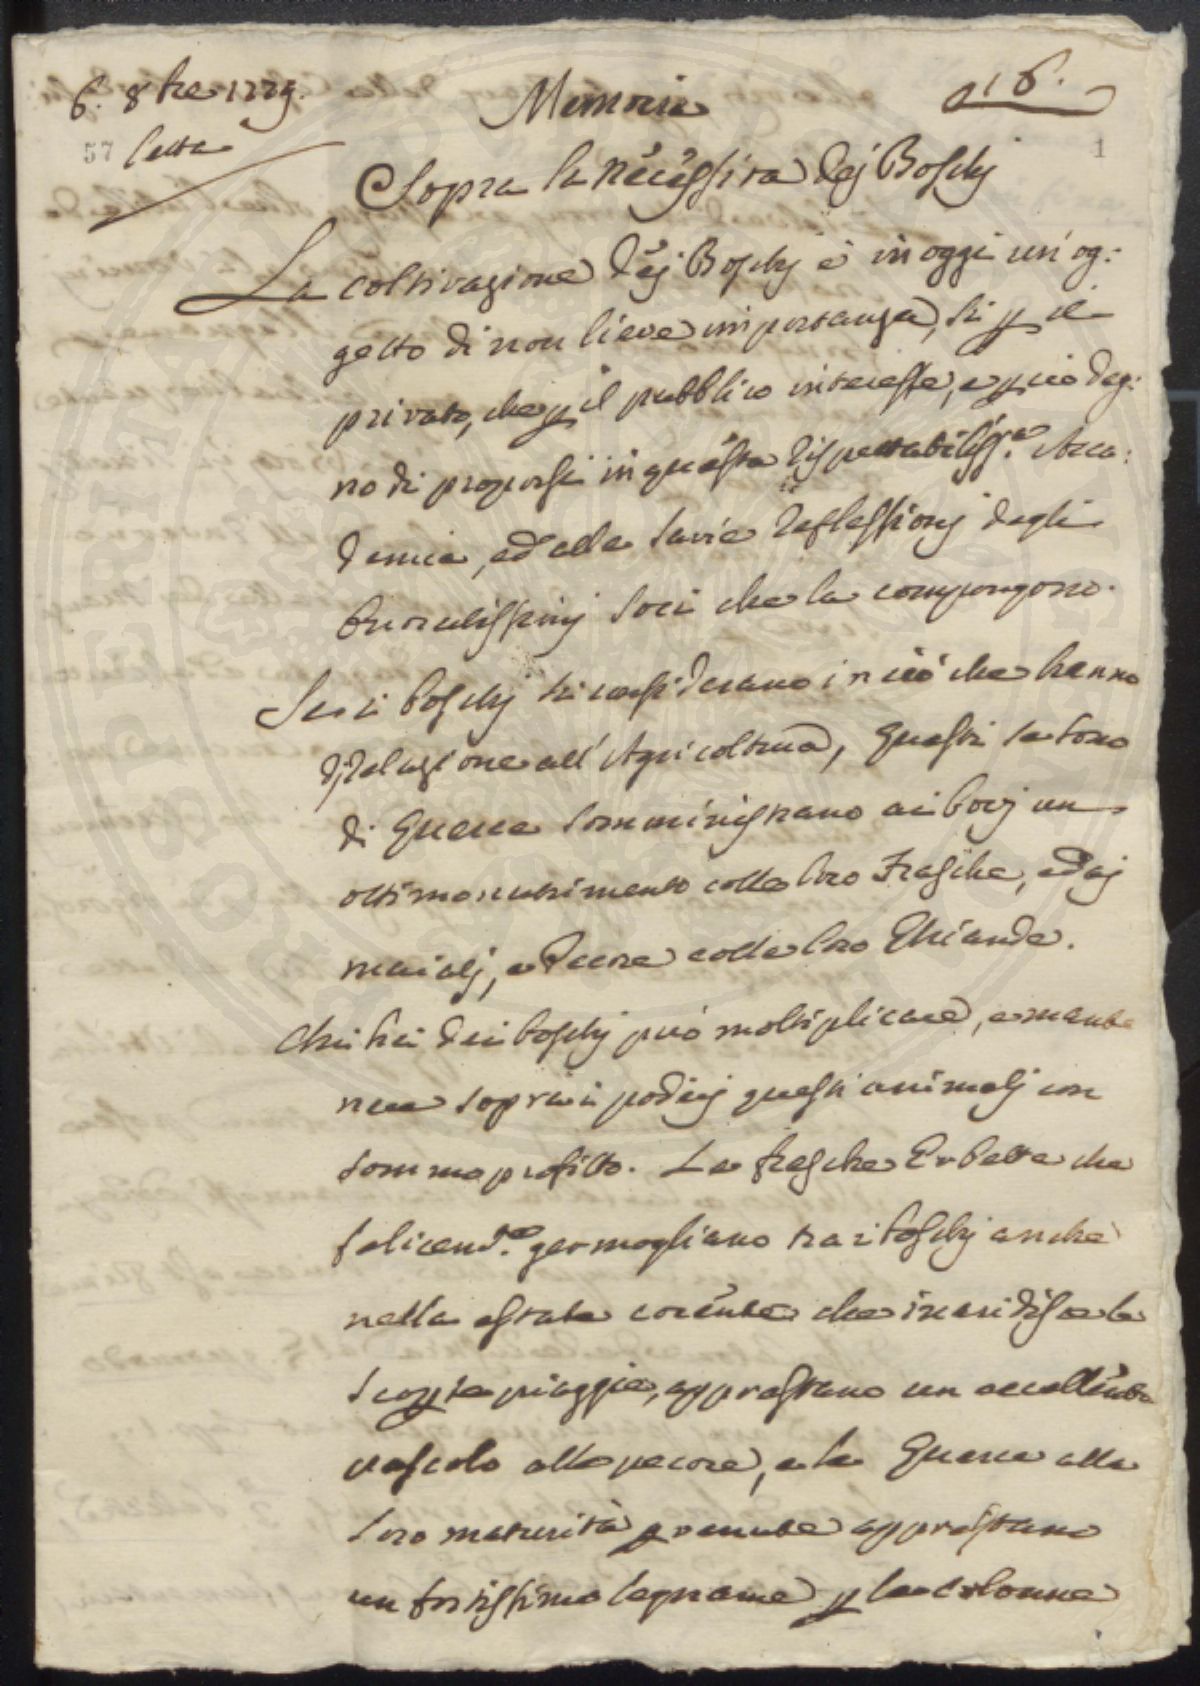 6. 8bre 1779.
Memoria
16.
57
Letta
1
Sopra la necessita dej Boschj
La coltivazione dej Boschj è in oggi un' og:
getto di non lieve importanza, si p il
privato, che p il pubblico interesse, e p ciò deg:
no di proporsi in questa rispettabiliss.ma Acca:
demia, ed alle savie reflessionj degli
Eruditissimj Soci che la compongono.
Se i boschj si considerano in ciò che hanno
di relazione all' Agricoltura, questi se sono
di Querce somministrano ai bovj un
ottimo nutrimento colle loro Frasche, ed aj
maialj, e Pecore colle loro Ghiande.
Chi hà dei boschj può moltiplicare, e mante
nere sopra i poderj questi animalj con
sommo profitto. Le fresche Erbette che
felicem.te germogliano tra i boschj anche
nella estate cocente che inaridisce le
scoperte piaggie, apprestano un eccellente
pascolo alle pecore, e le Querce alla
loro maturità pvenute apprestano
un fortissimo legname p le colonne